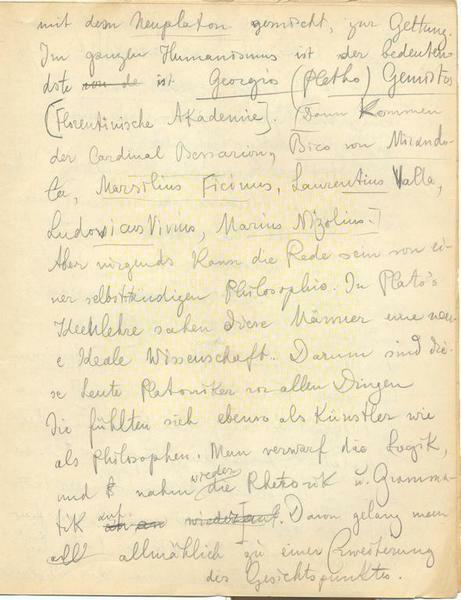 mit dem Neuplaton gemischt, zur Geltung.
Im ganzen Humanismus ist der bedeuten
dste von de ist Georgios (Pletho) Gemistos
[Florentinische Akademie]. (Dann kommen
der Cardinal Bessarion, Pico von Mirando-
la, Marsilius Ficinus, Laurentius Valla,
Ludovicus Vivus, Marius Nizolius.)
Aber nirgends kann die Rede sein von ei-
ner selbständigen Philosophie. In Plato's
Ideenlehre sahen diese Männer eine neu-
e Ideale Wissenschaft. Darum sind die-
se Leute Platoniker vor allen Dingen
Sie fühlten sich ebenso als Künstler wie
als Philosophen. Man verwarf die Logik,
und nahm wieder die Rhetorik u. Gramma-
tik auf. Daran gelang man
allmählich zu einer Erweiterung
des Gesichtspunktes.